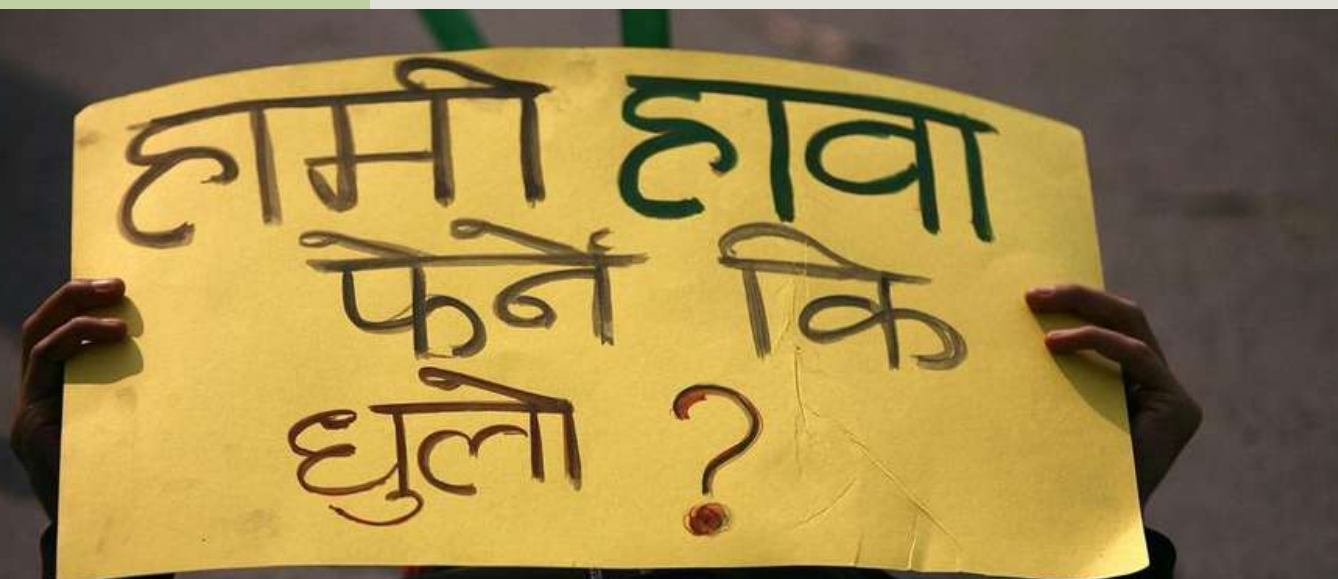 हामी हावा
फेर्ने कि
धुलो ?